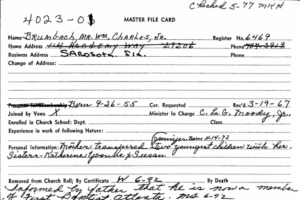 Checked 5-77 MKH
4023-01
MASTER FILE CARD
Name Brumbach, Mr. Wm. Charles, Jr. Register No. 6469
Home Address 114 Academy Way 29206 Phone
Business Address Sarasota, Fla. Phone
Change of Address:
Born 9-26-55 Cor. Requested Rec'd 3-19-67
Joined by Vows X Minister C. L. G. Moody, Jr.
Enrolled in Church School: Dept. Class
Experience in work of following Nature:
Born 4-14-72
Personal Information: Mother transferred two youngest children with her.
Sisters - Katherine Yvonne & Susan
Removed from Church Roll: By Certificate W 6-92 By Death
Informed by father that he is now a member
of First Baptist Atlanta, 6-92